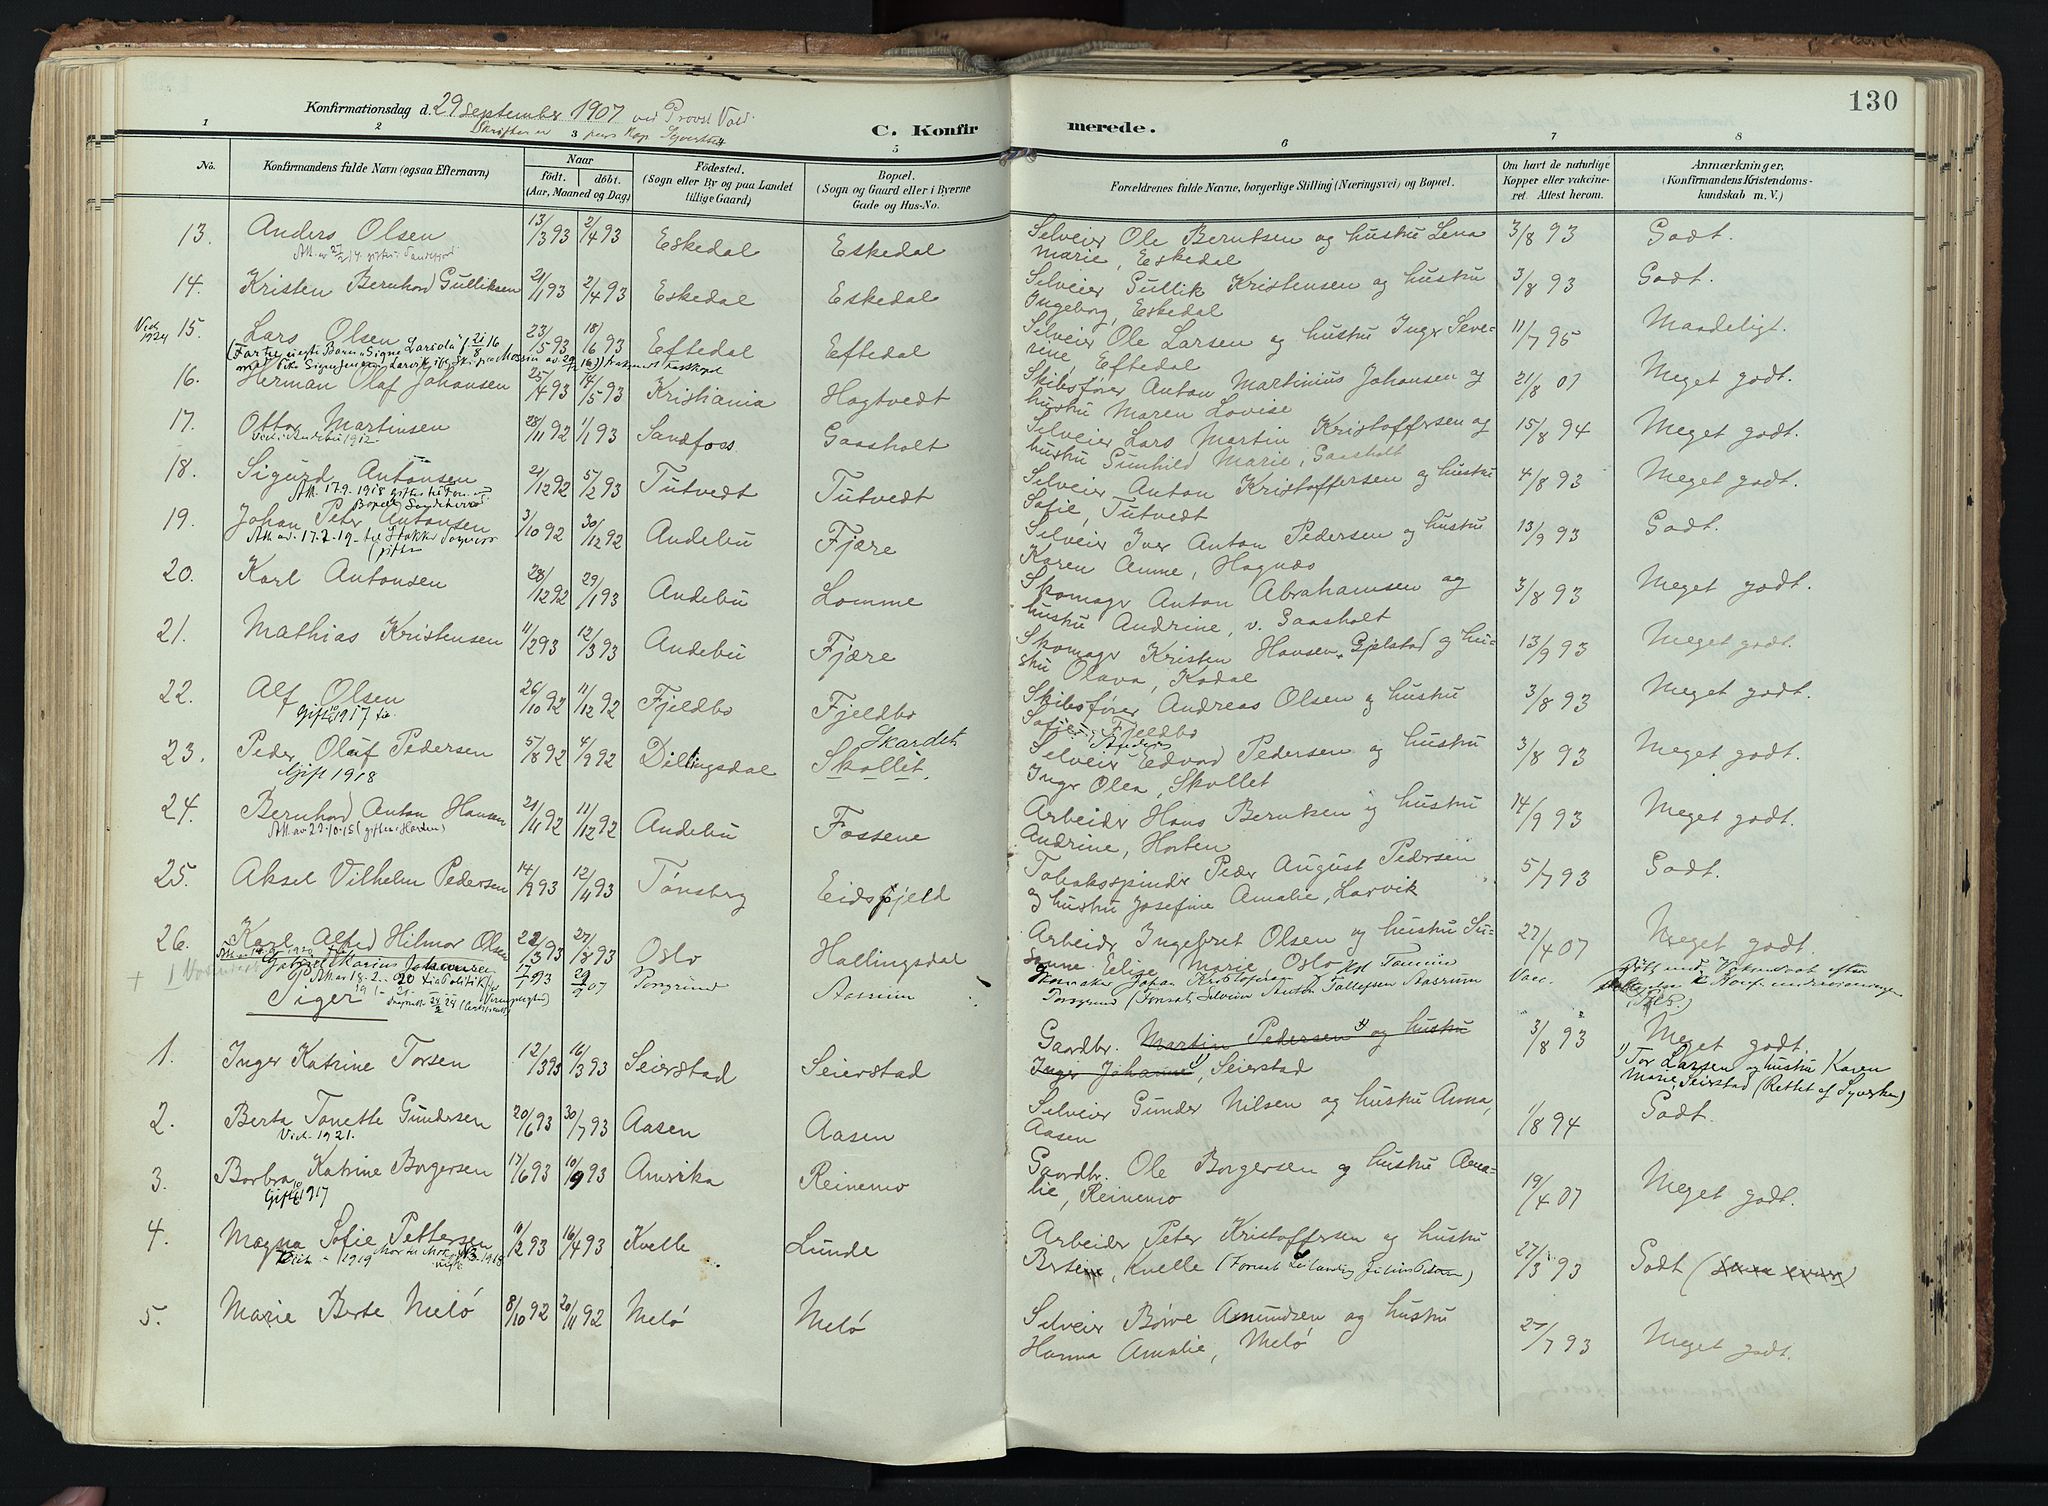 130
Konfirmationsdag d. 29 September 1907 ved Provst
C. Konfirmerede.
1 2 3 5 6 7 8
No.
Konfirmandens fulde Navn (ogsaa Efternavn)
Naar
født. døbt.
(Aar, Maaned og Dag)
Fødested.
(Sogn eller By og paa Landet
tillige Gaard)
Bopæl.
(Sogn og Gaard eller i Byerne
Gade og Hus-No.
Forældrenes fulde Navne, borgerlige Stilling (Næringsvei) og Bopæl.
Om havt de naturlige
Kopper eller vakcine-
ret. Attest herom.
Anmærkninger.
(Konfirmandens Kristendoms-
kundskab m. V.)
13. Anders Olsen 13/3 93 2/4 93 Eskedal Eskedal Selveier Ole Berntsen og hustru Lena 3/8 93 Godt.
Marie, Eskedal
14. Kristen Bernhard Gulliksen 21/1 93 2/4 93 Eskedal Eskedal Selveier Gullik Kristensen og hustru 3/8 93 Godt.
Ingeborg, Eskedal
15. Lars Olsen 23/5 93 18/6 93 Eftedal Eftedal Selveier Ole Larsen og hustru Inger Seve- 11/7 95 Maadeligt.
rine, Eftedal
16. Herman Olaf Johansen 25/4 93 14/5 93 Kristiania Hogtvedt Skibsfører Anton Martinius Johansen og 21/8 07 Meget godt.
hustru Maren Lovise
17. Ottar Martinsen 28/11 92 1/1 93 Sandfoss Gaasholt Selveier Lars Martin Kristoffersen og 15/8 94 Meget godt.
Vid. Andebu 1912
hustru Gunhild Marie, Gaasholt
18. Sigurd Antonsen 21/12 92 5/2 93 Tutvedt Tutvedt Selveier Anton Kristoffersen og hustru 4/8 93 Meget godt.
Sofie, Tutvedt
19. Johan Peter Antonsen 3/10 92 30/12 92 Andebu Fjære Selveier Iver Anton Pedersen og hustru 13/9 93 Godt.
Karen Anne, Hagnæs
20. Karl Antonsen 28/12 92 29/1 93 Andebu Lomme Skomager Anton Abrahamsen og 3/8 93 Meget godt.
hustru Andrine, v. Gaasholt
21. Mathias Kristensen 11/2 93 12/3 93 Andebu Fjære Skomager Kristen Hansen, Gjelstad og hu- 13/9 93 Meget godt.
stru Olava, Kodal
22. Alf Olsen 26/10 92 11/12 92 Fjeldbo Fjeldbo Skibsfører Andreas Olsen og hustru 3/8 93 Meget godt.
Sofie, Fjeldbo
Skardet
23. Peder Olaf Pedersen 5/8 92 4/9 92 Dillingsdal Skollet. Selveier Edvard Pedersen og hustru 3/8 93 Meget godt.
Gift 1918
Inger Olea, Skollet
24. Bernhard Anton Hansen 21/11 92 11/12 92 Andebu Fossene Arbeider Hans Berntsen og hustru 14/9 93 Meget godt.
Andrine, Horten
25. Aksel Vilhelm Pedersen 14/9 93 12/4 93 Tønsberg Eidsfjeld Tobaksspinder Peder August Pedersen 5/7 93 Godt.
og hustru Josefine Amalie, Larvik
26. Karl Alfred Hilmar Olsen 22/3 93 27/8 93 Oslo Hallingsdal Arbeider Ingebret Olsen og hustru Su- 27/4 07 Meget godt.
sanne Elise Marie Oslo
17/1 93 29/9 07 Porsgrund Aasrum Vacc.
Piger
1. Inger Katrine Torsen 12/1 93 16/3 93 Seierstad Seierstad Gaardbr. Martin Pedersen og hustru 3/8 93 Meget godt.
Inger Johanne, Seierstad
1) Tor Larsen og hustru Karen
Marie, Seierstad (Rettet af Syvertsen)
2. Berta Tonette Gundersen 20/6 93 30/7 93 Aasen Aasen Selveier Gunder Nilsen og hustru Anna, 1/8 94 Godt.
Vid. 1921.
Aasen
3. Borbra Katrine Borgersen 17/6 93 10/9 93 Amerika Reinemo Gaardbr. Ole Borgersen og hustru Ama- 19/4 07 Meget godt.
lie, Reinemo
4. Magna Sofie Pettersen 11/2 93 16/4 93 Kvelle Lunde Arbeider Peter Kristoffersen og hustru 27/3 93 Godt
Kvelle
5. Marie Berte Melö 8/10 92 20/11 92 Melö Melö Selveier Børre Amundsen og hustru 27/7 93 Meget godt.
Hanna Amalie, Melö